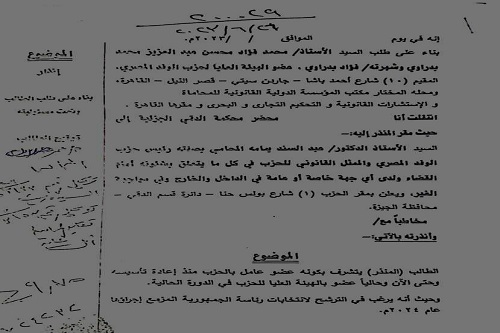 ٢٠٠٢٩
٢٠٢٣/٦/٢٩
إنه في يوم الموافق / / ٢٠٢٣م.
بناء على طلب السيد الأستاذ/ محمد فؤاد محسن عبد العزيز محمد
بدراوي وشهرته/ فؤاد بدراوي . عضو الهيئة العليا لحزب الوفد المصري.
المقيم (١٠) شارع أحمد باشا – جاردن سيتي – قصر النيل – القاهرة،
ومحله المختار مكتب المؤسسة الدولية القانونية للمحاماة
و الإستشارات القانونية و التحكيم التجاري و البحري و مقرها القاهرة .
انتقلت أنا محضر محكمة الدقي الجزئية إلى
حيث مقر المنذر إليه:-
السيد الأستاذ الدكتور/ عبد السند يمامه المحامي بصفته رئيس حزب
الوفد المصري والممثل القانوني للحزب في كل ما يتعلق بشئونه أمام
القضاء ولدى أي جهة خاصة أو عامة في الداخل والخارج وفي مواجهة
الغير. ويعلن بمقر الحزب (١) شارع بولس حنا – دائرة قسم الدقي –
محافظة الجيزة.
مخاطباً مع/
وأنذرته بالآتي:-
الموضوع
الطالب (المنذر) يتشرف بكونه عضو عامل بالحزب منذ إعادة تأسيسه
وحتى الآن وحالياً عضو بالهيئة العليا للحزب في الدورة الحالية.
وحيث أنه يرغب في الترشح لانتخابات رئاسة الجمهورية المزمع إجراؤها
عام ٢٠٢٤م.
الموضوع
إنذار
بناء على طلب الطالب
وتحت مسئوليته
توقيع الطالب